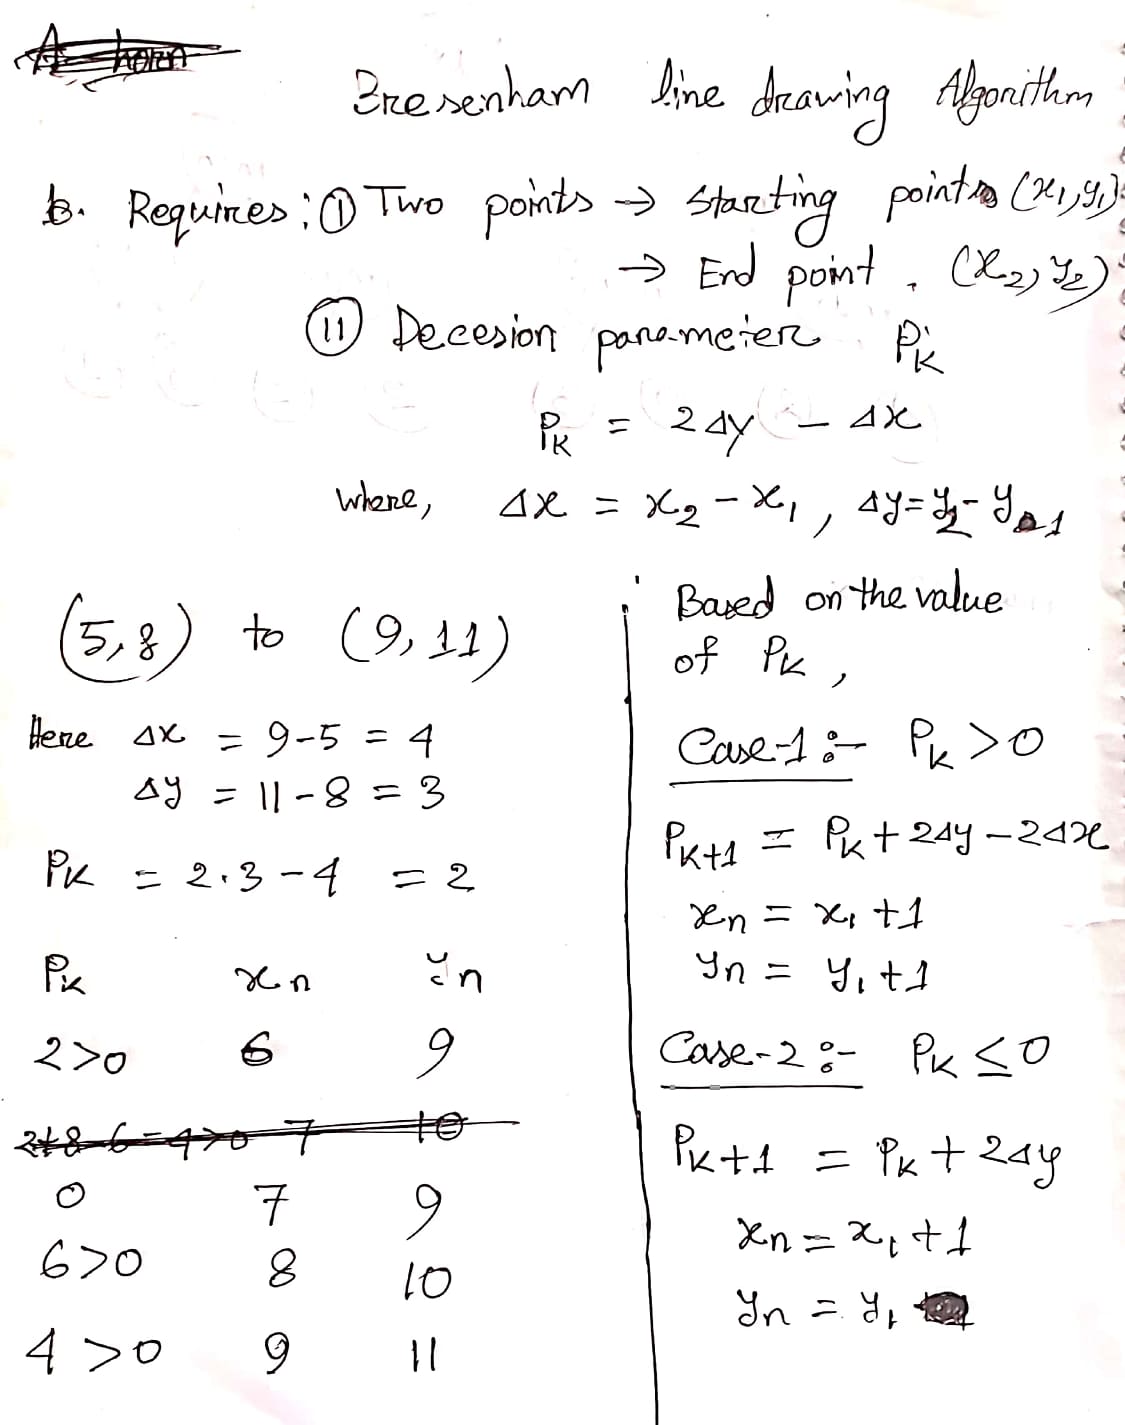 Bresenham line drawing Algorithm
b. Requires: ① Two points → Starting point (x₁,y₁)
→ End point . (x₂, y₂)
⑪ Decesion parameter Pₖ
Pₖ = 2Δy - Δx
where, Δx = x₂ - x₁ , Δy = y₂ - y₁
(5,8) to (9,11)
Here Δx = 9-5 = 4
Δy = 11-8 = 3
Pₖ = 2.3 - 4 = 2
Pₖ xₙ yₙ
2>0 6 9
2+8-6=4>0 7 10
0 7 9
6>0 8 10
4>0 9 11
Based on the value
of Pₖ ,
Case-1 :- Pₖ >0
Pₖ₊₁ = Pₖ + 2Δy - 2Δx
xₙ = x₁ +1
yₙ = y₁ +1
Case-2 :- Pₖ ≤ 0
Pₖ₊₁ = Pₖ + 2Δy
xₙ = x₁ +1
yₙ = y₁